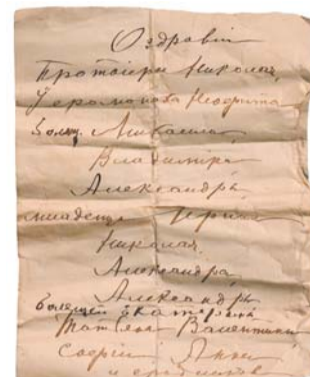 О здравіи
Протоіерея Николая,
Іеромонаха
бол. Михаила
Владиміра
Александра
младенца
Николая
Александра,
Александры
болящей Екатерины
Валентины
Софіи Анны
и сродников